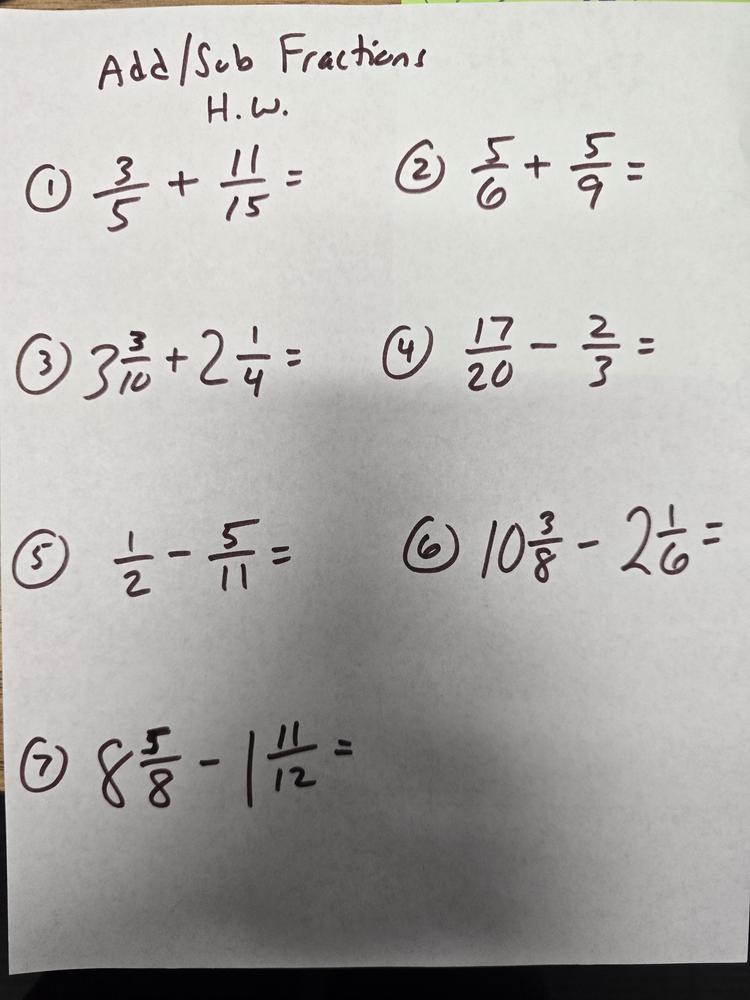 Add/Sub Fractions
H.W.
① 3/5 + 11/15 =
② 5/6 + 5/9 =
③ 3 3/10 + 2 1/4 =
④ 17/20 - 2/3 =
⑤ 1/2 - 5/11 =
⑥ 10 3/8 - 2 1/6 =
⑦ 8 5/8 - 1 11/12 =